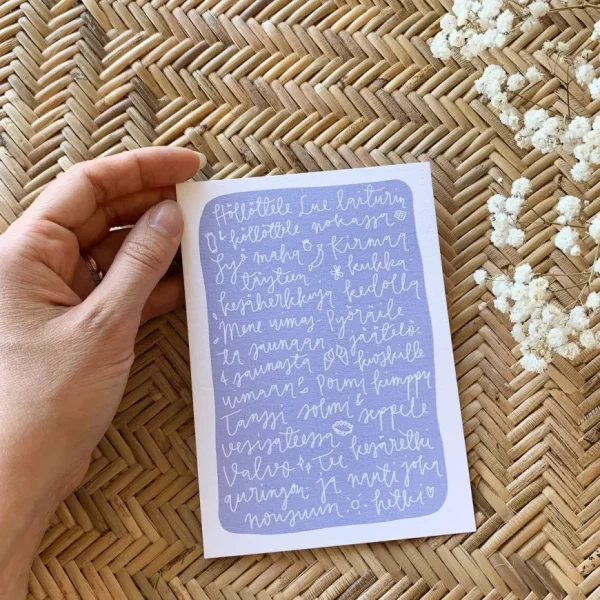 Höllöttele Lue laiturin
& höllöttele nokassa
Syö maha Kirmaa
täyteen kukka
kesäherkkuja kedolla
Mene uimaan Pyöräile
ja saunaan jäätelö
& saunasta kioskille
uimaan Poimi kimppu
Tanssi solmi seppele
vesisateessa
Valvo Tee kesäretki
auringon ja nauti joka
nousuun hetki